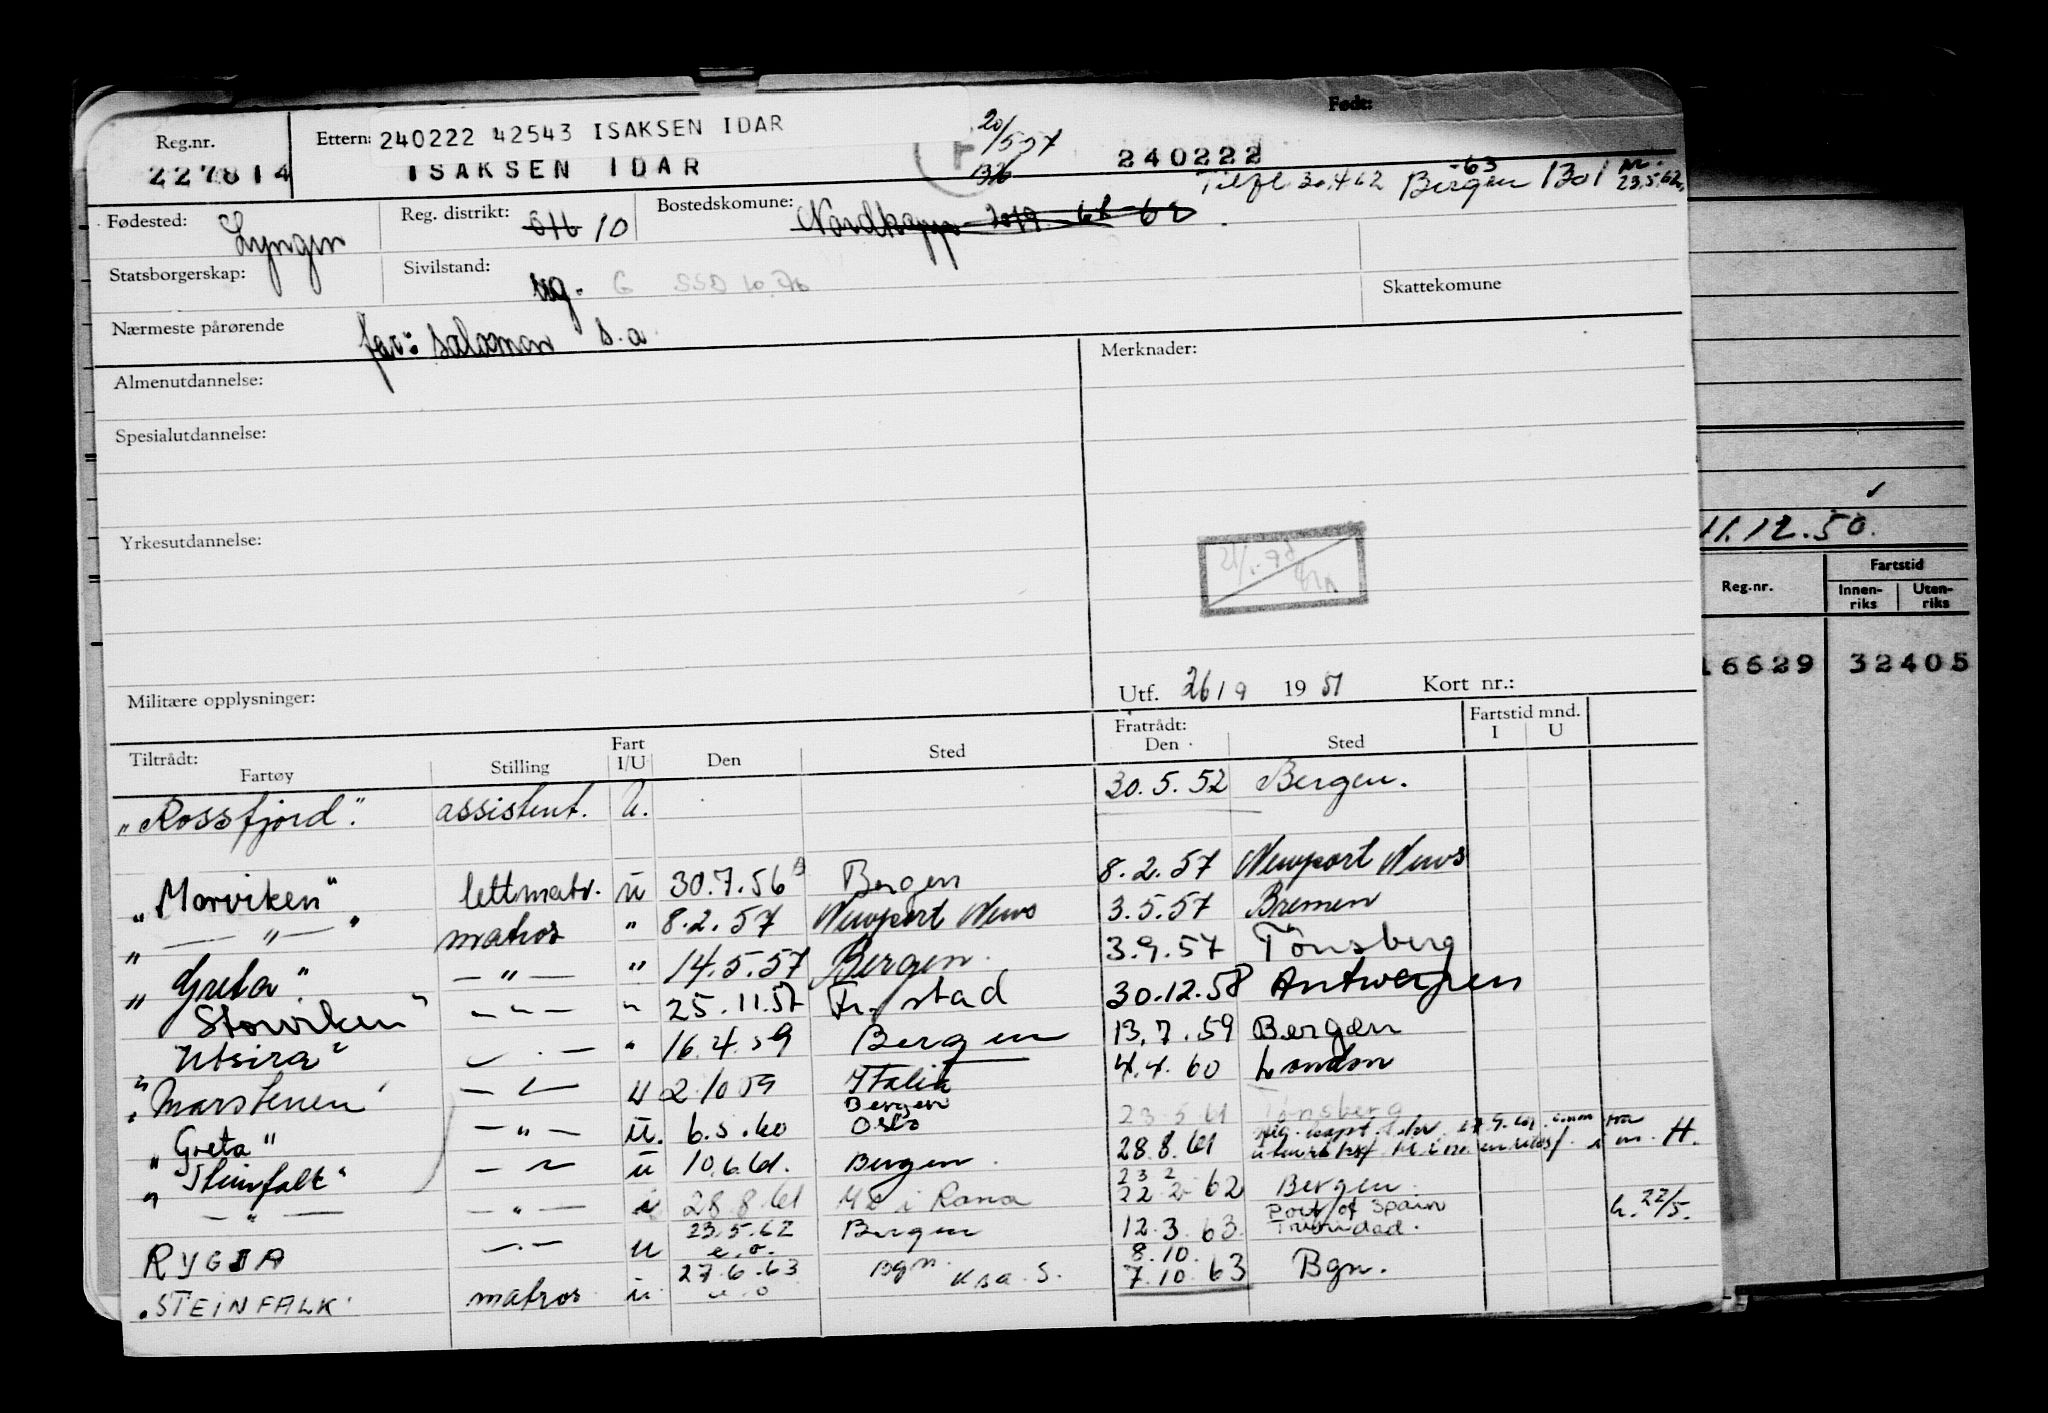 Født:
Reg.nr.
227814
Ettern: 240222 42543 ISAKSEN IDAR
ISAKSEN IDAR
20/5 57
240222
Tilfl 30.4 62 Bergen -63 1301 23.5.62
Fødested: Lyngen
Reg. distrikt: 10
Bostedskomune: Nordkapp
Statsborgerskap:
Sivilstand: ug. G SSD 10.76
Skattekomune
Nærmeste pårørende far: Salomon s.a
Almenutdannelse:
Merknader:
Spesialutdannelse:
Yrkesutdannelse:
Militære opplysninger:
Utf. 26/9 1951 Kort nr.:
Tiltrådt: Fartøy Stilling Fart I/U Den Sted Fratrådt: Den Sted Fartstid mnd. I U
"Rossfjord". assistent. U. 30.5.52 Bergen.
"Morviken" lettmatr. u 30.7.56 Bergen 8.2.57 Newport News
" — " — " matros " 8.2.57 Newport News 3.5.57 Bremen
"Greta" — " — " 14.5.57 Bergen. 3.9.57 Tønsberg
Storviken" — " — " 25.11.57 Fr.stad 30.12.58 Antwerpen
"Utsira" — " 16.4.59 Bergen 13.7.59 Bergen
"Marstenen" — " — u 2.10 59 Italia 4.4.60 London
"Greta" — " — u. 6.5.60 Bergen Oslo 23.5.61 Tønsberg
"Steinfalk" — " — u 10.6.61. Bergen. 28.8.61
— " — — " — i 28.8.61 Mo i Rana 23 2 22.2.62 Bergen
RYGJA — " — u 23.5.62 e.o. Bergen 12.3.63. Port of Spain Trinidad. h. 22/5.
"STEINFALK" matros u 27.6.63 e.o Bgn. Ksa. S. 8.10. 7.10.63 Bgn.
11.12.50.
Reg.nr. Fartstid
Innen-riks Uten-riks
16629 32405